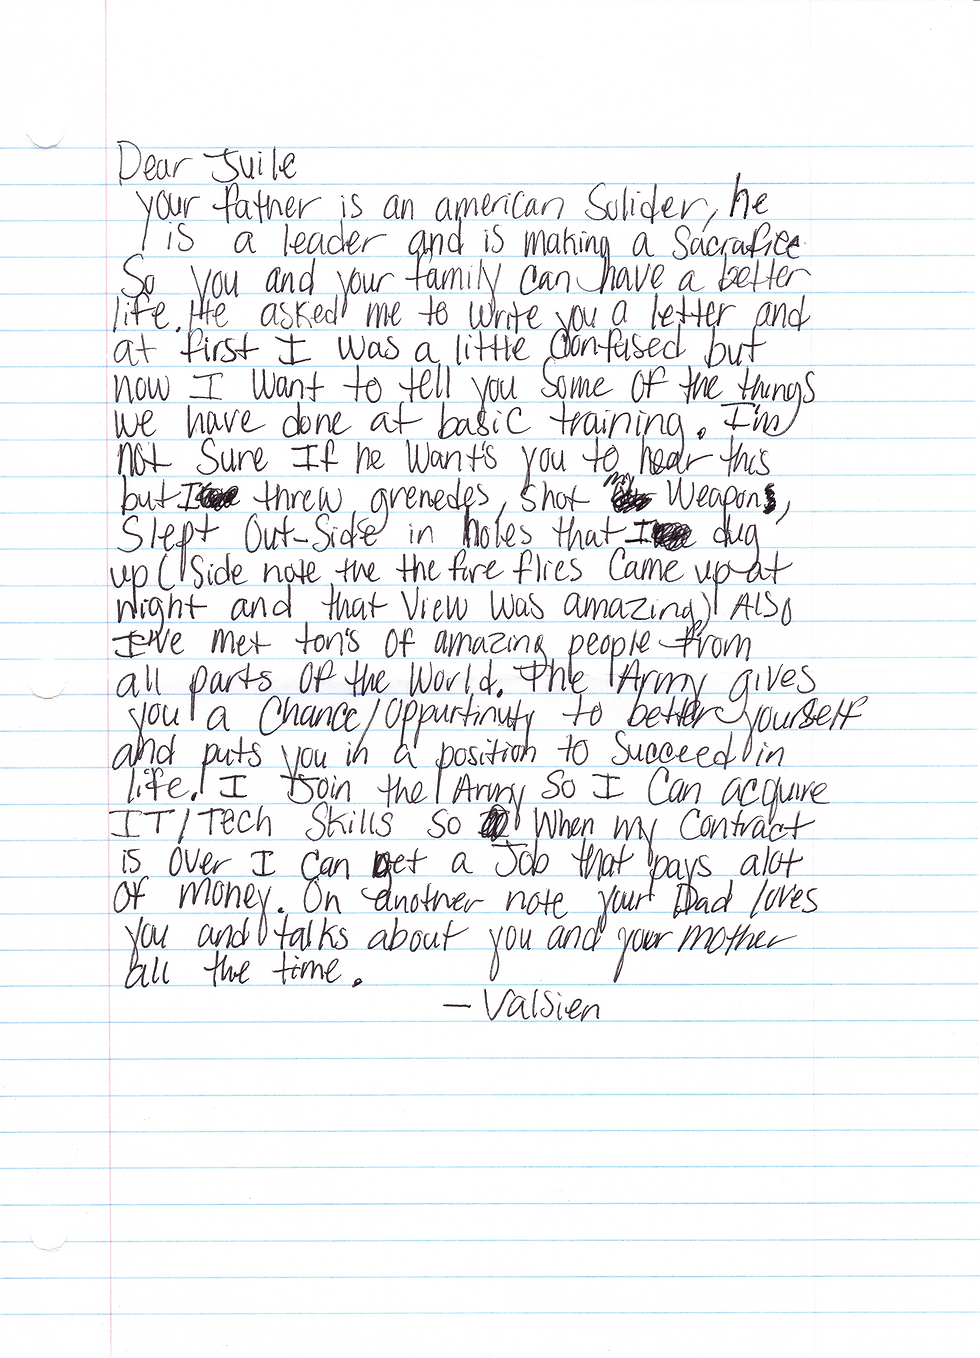 Dear Juile
your father is an american Solider, he
is a leader and is making a Sacrafice
So you and your family can have a better
life. He asked me to write you a letter and
at first I was a little Confused but
now I want to tell you Some of the things
we have done at basic training. I'm
not Sure If he Want's you to hear this
but I threw grenedes, shot my Weapons,
Slept Out-Side in holes that I dug
up (Side note the the fire flies Came up at
night and that View was amazing) Also
I've met ton's of amazing people from
all parts of the World. The Army gives
you a Chance/Oppurtinuty to better yourself
and puts you in a position to Succeed in
life. I Join the Army So I Can acquire
IT/Tech Skills so When my Contract
is Over I Can get a Job that pays alot
Of Money. On another note your Dad loves
you and talks about you and your mother
all the time.
— Valsien